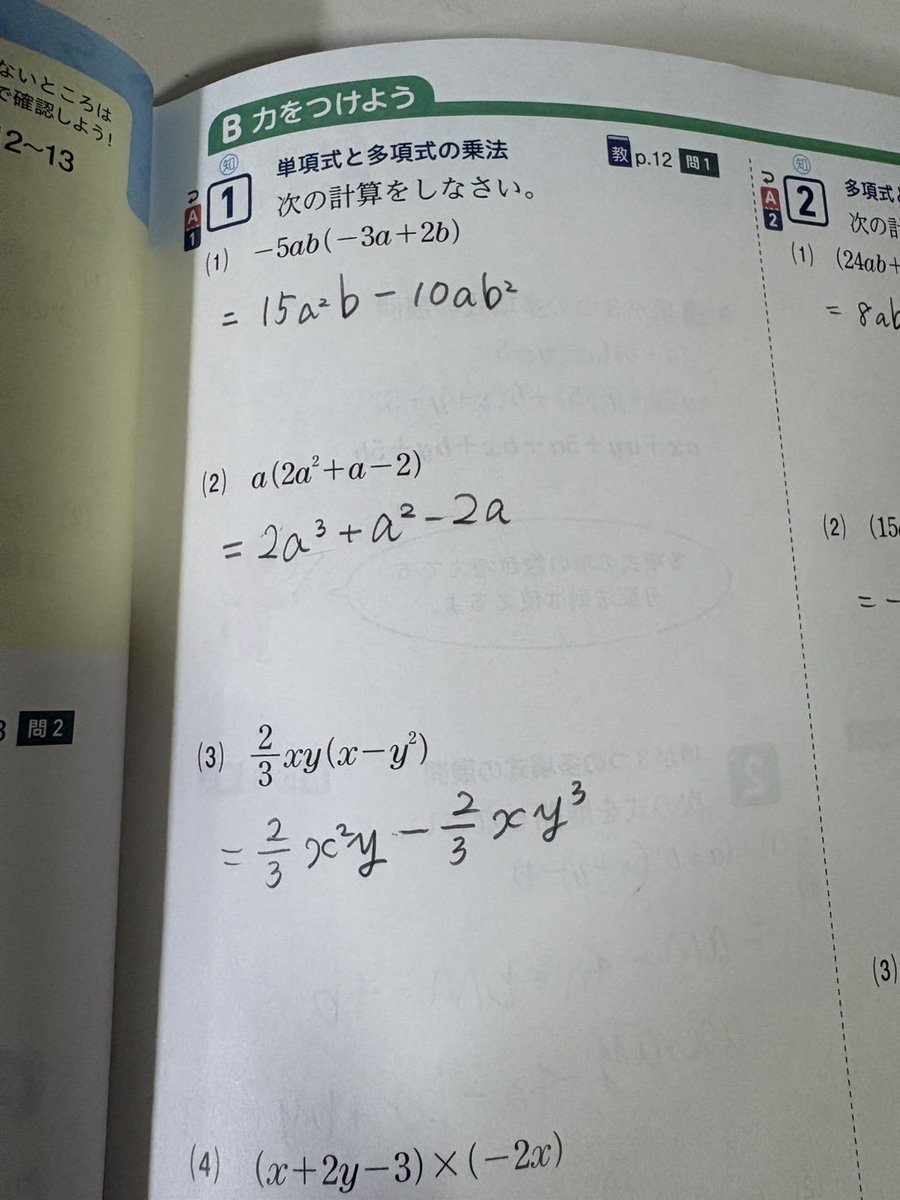 ないところは
で確認しよう!
12〜13
問2
B 力をつけよう
知
A
1
1
単項式と多項式の乗法
教 p.12 問1
次の計算をしなさい。
(1) −5ab(−3a+2b)
= 15a²b − 10ab²
(2) a(2a²+a−2)
= 2a³ + a² − 2a
(3) 2/3 xy(x−y²)
= 2/3 x²y − 2/3 xy³
(4) (x+2y−3)×(−2x)
知
A
2
2
多項式
次の計
(1) (24ab+
= 8ab
(2) (15
= −
(3)